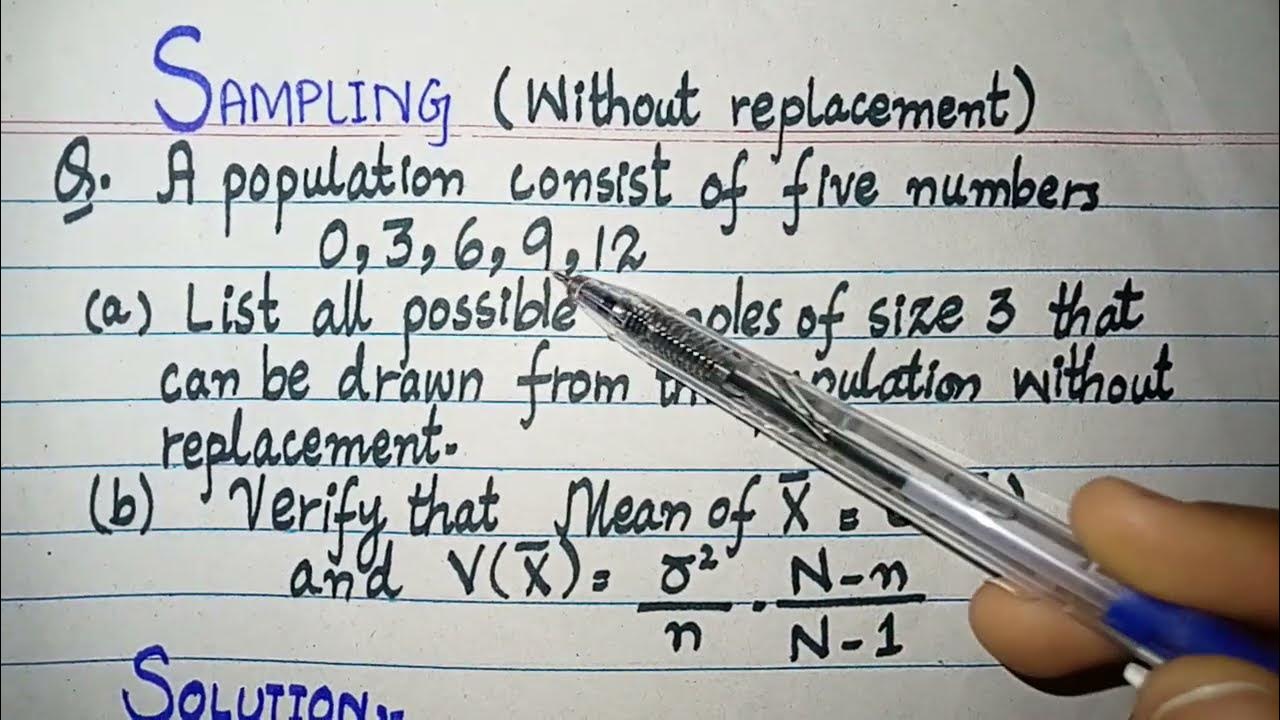 SAMPLING (Without replacement)
Q. A population consist of five numbers
0, 3, 6, 9, 12
(a) List all possible of size 3 that
can be drawn from without
replacement.
(b) Verify that Mean of X̄ =
and V(X̄) = σ²/n · N-n/N-1
SOLUTION:-